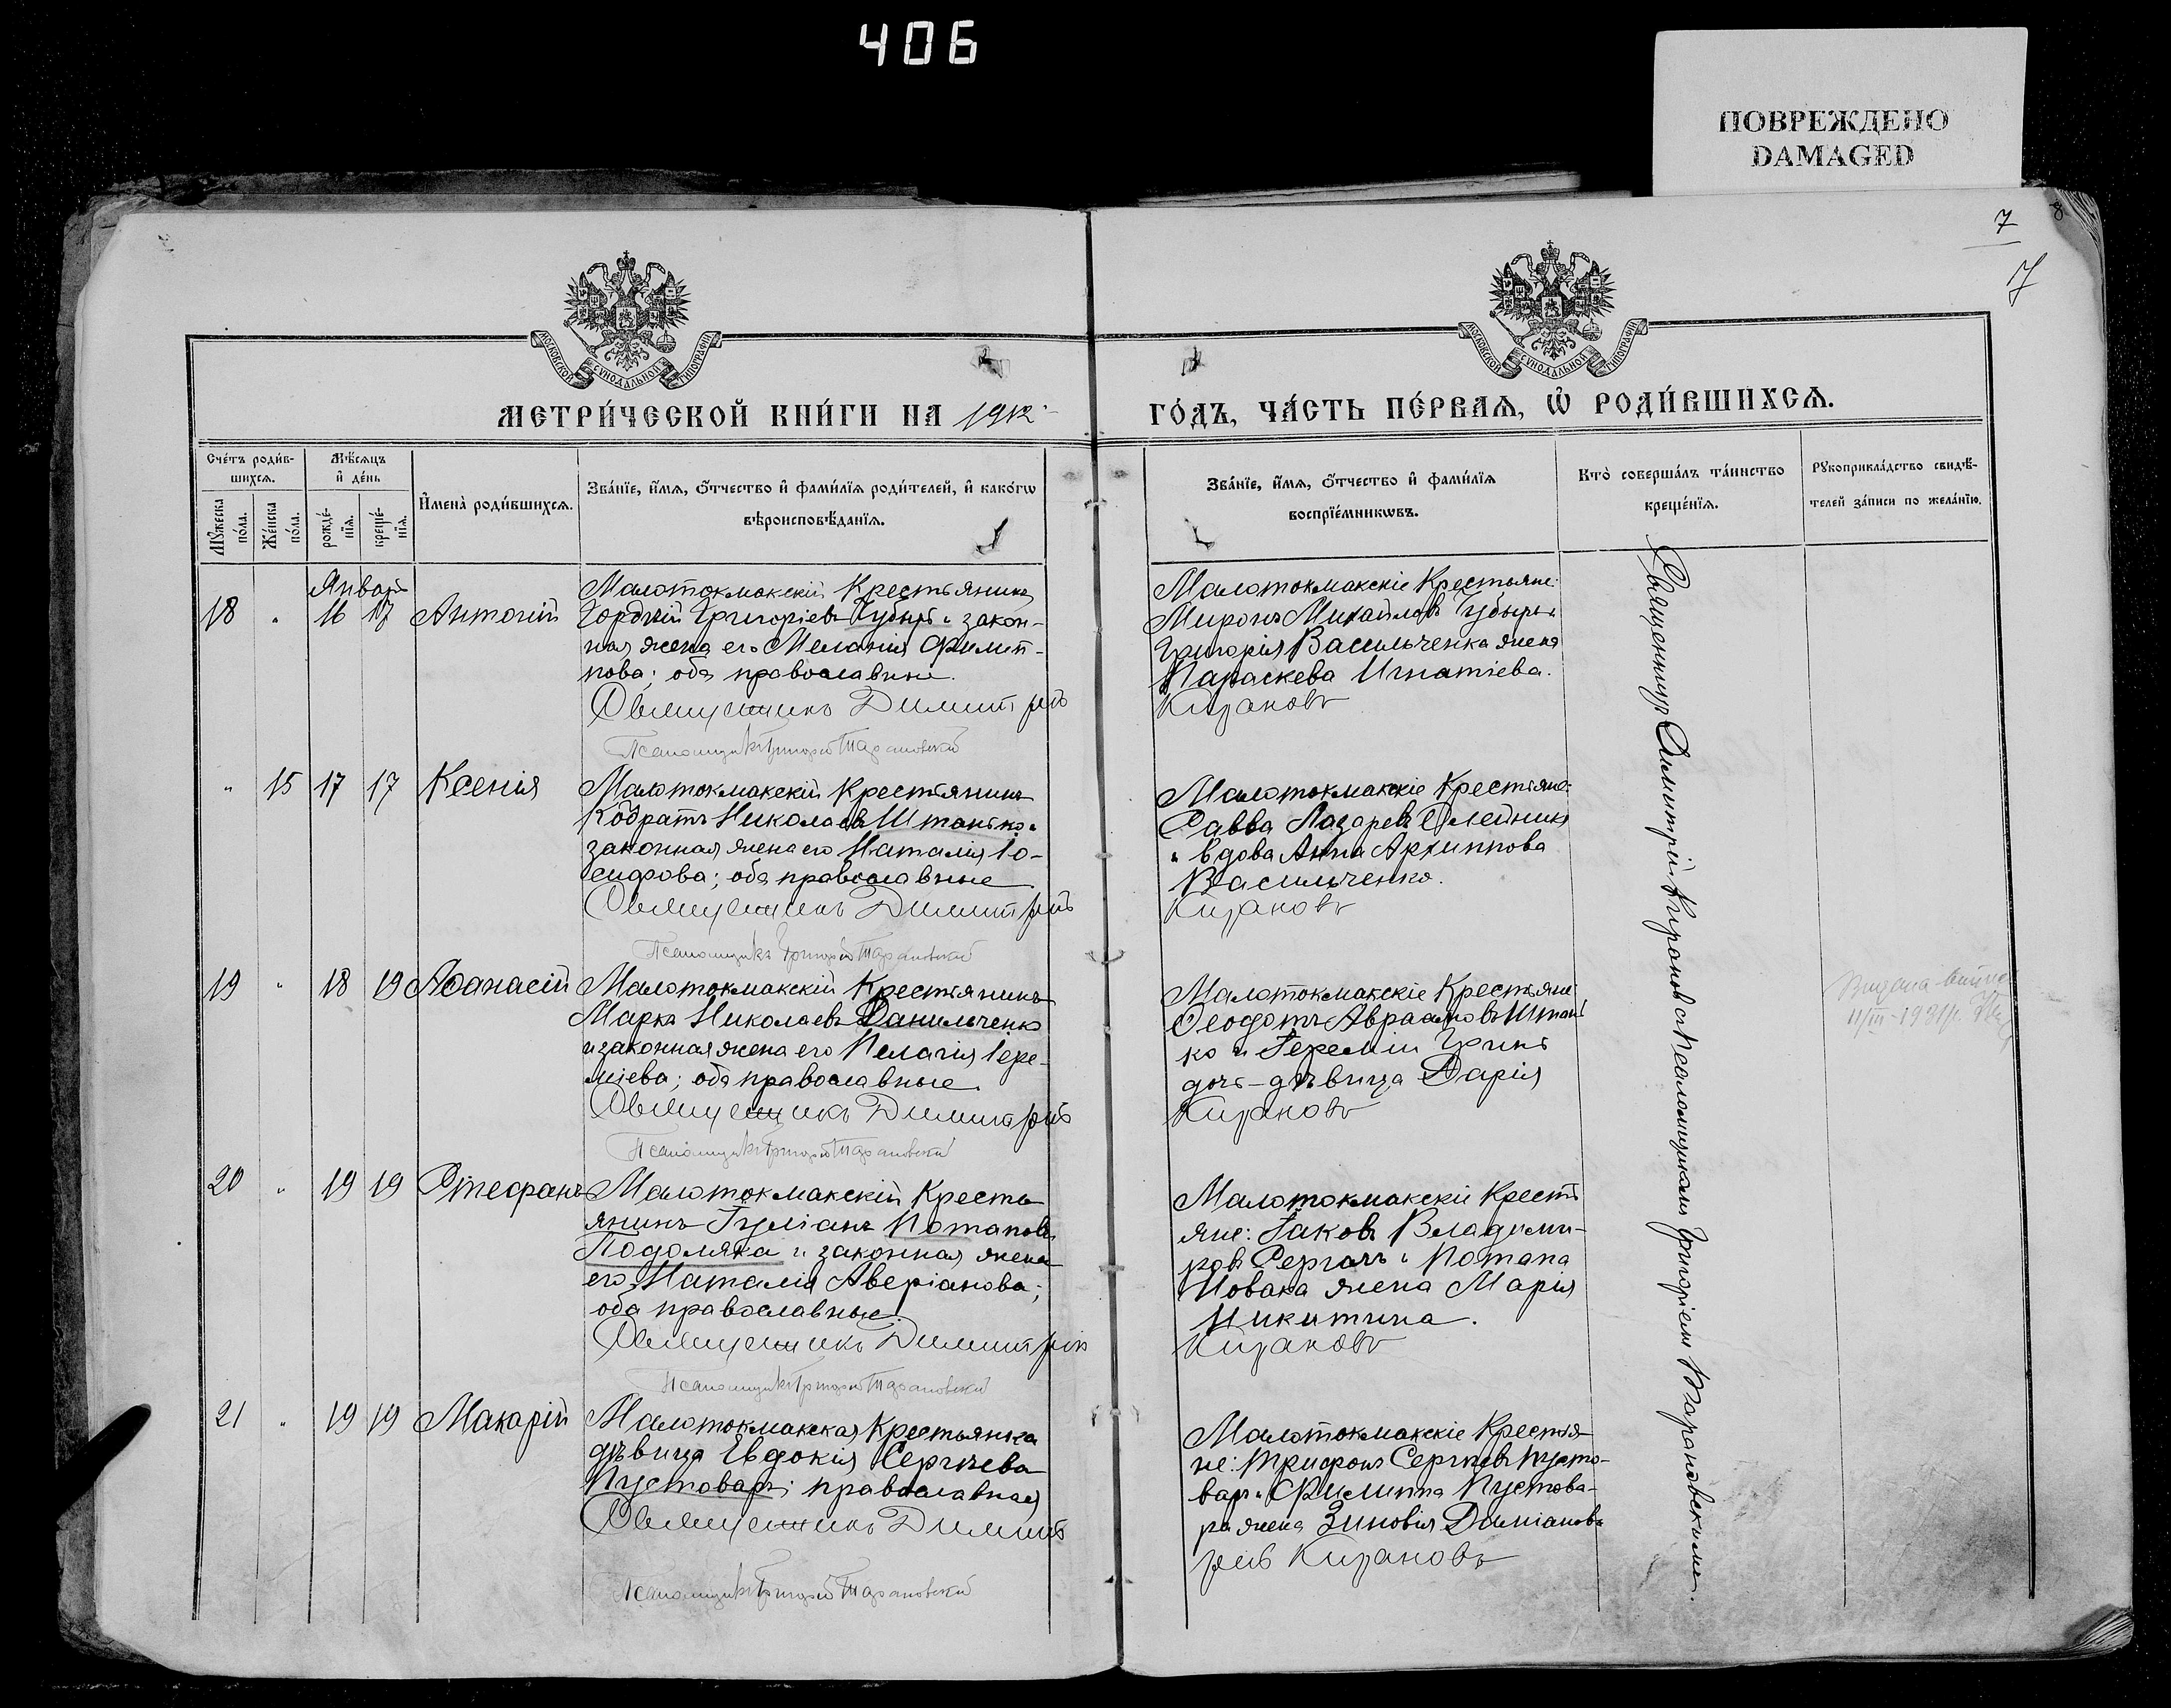 406
ПОВРЕЖДЕНО
DAMAGED
7
8
17
МОСКОВСКОЙ СѴНОДАЛЬНОЙ ТИПОГРАФІИ
МОСКОВСКОЙ СѴНОДАЛЬНОЙ ТИПОГРАФІИ
МЕТРИ́ЧЕСКОЙ КНИ́ГИ НА 1912
ГО́ДЪ, ЧА́СТЬ ПЕ́РВАѦ, Ѡ҆ РОДИ́ВШИХСѦ.
Сче́тъ роди́в-
шихсѧ.
Мꙋ́жеска по́ла.
Же́нска по́ла.
Мѣ́сѧцъ
и҆ де́нь
рожде́-
нїѧ.
креще́-
нїѧ.
И҆мена̀ роди́вшихсѧ.
Зва́нїе, и҆́мѧ, ѻ҆́тчество и҆ фами́лїѧ роди́телей, и҆ како́гѡ
вѣроисповѣ́данїѧ.
Зва́нїе, и҆́мѧ, ѻ҆́тчество и҆ фами́лїѧ
воспрїе́мникѡвъ.
Кто̀ соверша́лъ та́инство
креще́нїѧ.
Рꙋкоприкла́дство свидѣ́-
телей за́писи по жела́нїю.
Январь
18 " 16 17 Антоній
Малотокмакскій Крестьянинъ
Гордѣй Григоріевъ Губырь и закон-
ная жена его Меланія Филип-
пова; оба православные.
Священникъ Димитрій
Псаломщикъ Григорій Тарановскій
Малотокмакскіе Крестьяне:
Миронъ Михайловъ Губырь и
Григорія Васильченка жена
Параскева Игнатіева.
Кирановъ
" 15 17 17 Ксенія
Малотокмакскій Крестьянинъ
Кодратъ Николаевъ Штанько и
законная жена его Наталія Іо-
сифова; оба православные
Священникъ Димитрій
Псаломщикъ Григорій Тарановскій
Малотокмакскіе Крестьяне:
Савва Лазаревъ Олейникъ
и вдова Анна Архиппова
Васильченко.
Кирановъ
19 " 18 19 Аѳанасій
Малотокмакскій Крестьянинъ
Марка Николаевъ Данильченко
и законная жена его Пелагія Іере-
міева; оба православные.
Священникъ Димитрій
Псаломщикъ Григорій Тарановскій
Малотокмакскіе Крестьяне
Ѳеодотъ Авраамовъ Штань
ко и Іереміи Гринь
дочь-дѣвица Дарія
Кирановъ
11/III-1931 р.
20 " 19 19 Стефанъ
Малотокмакскій Кресть
янинъ Іуліанъ Потаповъ
Подоляка и законная жена
его Наталія Аверіанова;
оба православные.
Священникъ Димитрій
Псаломщикъ Григорій Тарановскій
Малотокмакскіе Кресть
яне: Іаковъ Владими-
ровъ Сергачъ и Потапа
Новака жена Марія
Никитина.
Кирановъ
21 " 19 19 Макарій
Малотокмакская Крестьянка
дѣвица Евдокія Сергѣева
Пустоваръ; православная
Священникъ Димит
Псаломщикъ Григорій Тарановскій
Малотокмакскіе Крестья-
не: Трифонъ Сергѣевъ Пусто-
варъ и Филиппа Пустова-
ра жена Зиновія Даміанова
рій Кирановъ
Священникъ Димитрій Кирановъ съ псаломщикомъ Григоріемъ Тарановскимъ.